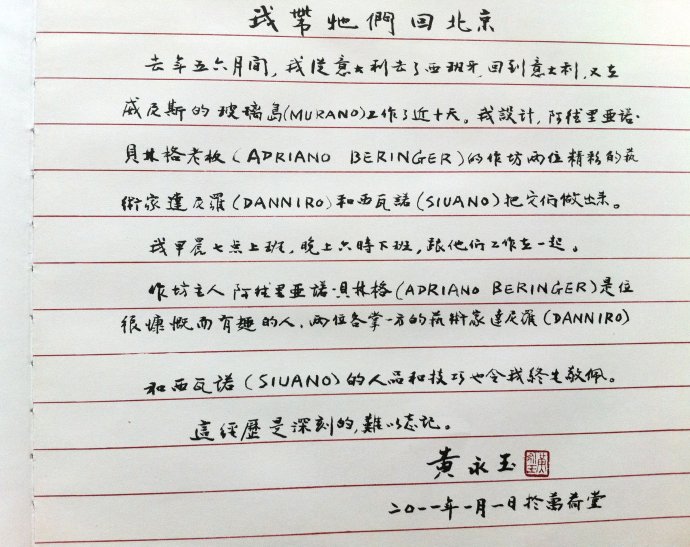 我帶牠們回北京
去年五六月间，我從意大利去了西班牙，回到意大利，又在
威尼斯的玻璃島(MURANO)工作了近十天。我設計，阿德里亞諾·
貝林格老板(ADRIANO BERINGER)的作坊两位精彩的藝
術家達尼羅(DANNIRO)和西瓦諾(SIUANO)把它们做出来。
我早晨七点上班，晚上六時下班，跟他们工作在一起。
作坊主人阿德里亞諾·貝林格(ADRIANO BERINGER)是位
很慷慨而有趣的人，两位各掌一方的藝術家達尼羅(DANNIRO)
和西瓦諾(SIUANO)的人品和技巧也令我終生敬佩。
這經歷是深刻的，難以忘记。
黄永玉
二〇一一年一月一日於萬荷堂